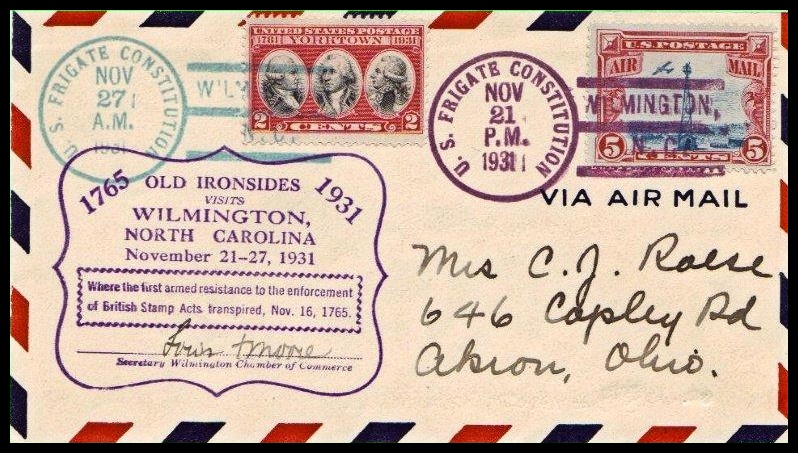 U. S. FRIGATE CONSTITUTION
NOV
27
A.M.
1931
WILM
N.C.
UNITED STATES POSTAGE
1781 YORKTOWN 1931
2 CENTS 2
U. S. FRIGATE CONSTITUTION
NOV
21
P.M.
1931
WILMINGTON,
N.C.
U.S. POSTAGE
AIR MAIL
5 CENTS 5
VIA AIR MAIL
1765 OLD IRONSIDES 1931
VISITS
WILMINGTON,
NORTH CAROLINA
November 21-27, 1931
Where the first armed resistance to the enforcement
of British Stamp Acts transpired, Nov. 16, 1765.
Louis T Moore
Secretary Wilmington Chamber of Commerce
Mrs C. J. Roese
646 Copley Rd
Akron, Ohio.